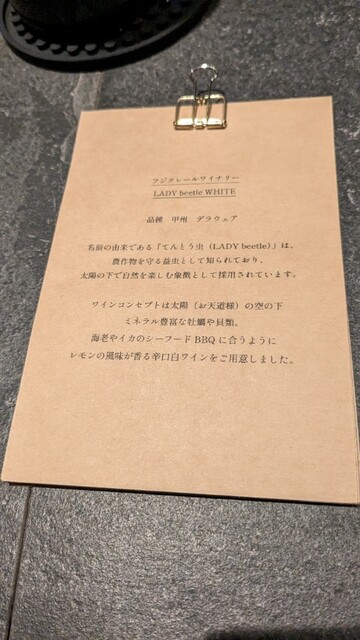 フジクレールワイナリー
LADY beetle WHITE
品種　甲州　デラウェア
名前の由来である「てんとう虫（LADY beetle）」は、
農作物を守る益虫として知られており、
太陽の下で自然を楽しむ象徴として採用されています。
ワインコンセプトは太陽（お天道様）の空の下
ミネラル豊富な牡蠣や貝類。
海老やイカのシーフード BBQ に合うように
レモンの風味が香る辛口白ワインをご用意しました。